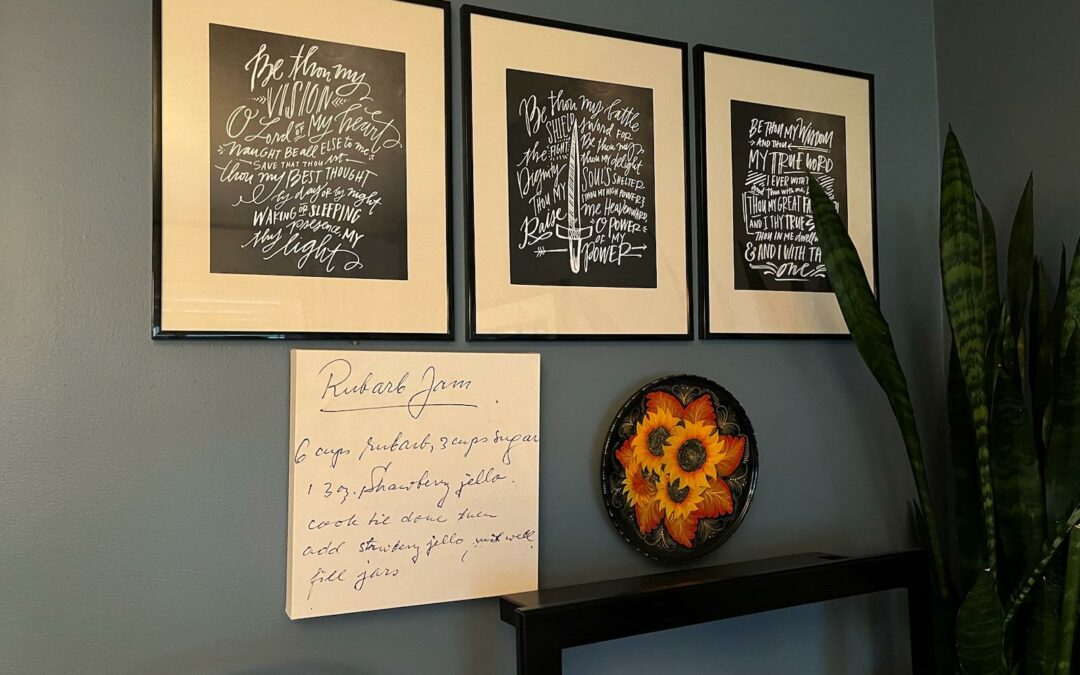 Be thou my
VISION
O Lord OF My heart
NAUGHT BE all ELSE to me
SAVE THAT THOU ART
thou my BEST THOUGHT
by day or by night
WAKING OR SLEEPING
thy presence MY
light
Be thou my battle
SHIELD SWORD FOR
the FIGHT Be thou my
Dignity thou my delight
THOU MY SOUL'S SHELTER
THOU MY HIGH POWER
Raise me Heavenward
O POWER
OF MY
POWER
BE THOU MY WISDOM
AND THOU
MY TRUE WORD
I EVER WITH
And Thou with me,
THOU MY GREAT FA
AND I THY TRUE S
THOU IN ME dwell
& AND I WITH
one
Rubarb Jam
6 cups rubarb, 3 cups sugar
1 3 oz. Strawberry jello.
cook til done then
add strawberry jello, mix well
fill jars